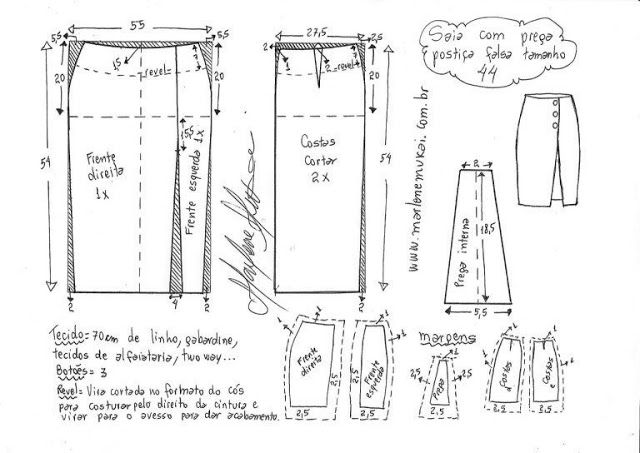 Saia com prega
postiça falsa tamanho
44
55
5,5
5,5
20
20
54
1,5
revel
3
5,5
Frente
direita
1x
Frente esquerda 1x
2
4
2
27,5
2,5
2
1
2
revel
3
20
54
Costas
Cortar
2x
2
www.marlenemukai.com.br
2
18,5
Prega interna
5,5
Tecido= 70cm de linho, gabardine,
tecidos de alfaiataria, two way...
Botões= 3
Revel= Vira cortada no formato do cós
para costurar pelo direito da cintura e
virar para o avesso para dar acabamento.
margens
1
1
Frente
direita
2,5
2,5
1
1
Frente
esquerda
2,5
2,5
1
2,5
2,5
Prega
2,5
1
1
Costas
d
2,5
2,5
1
1
Costas
e
2,5
2,5